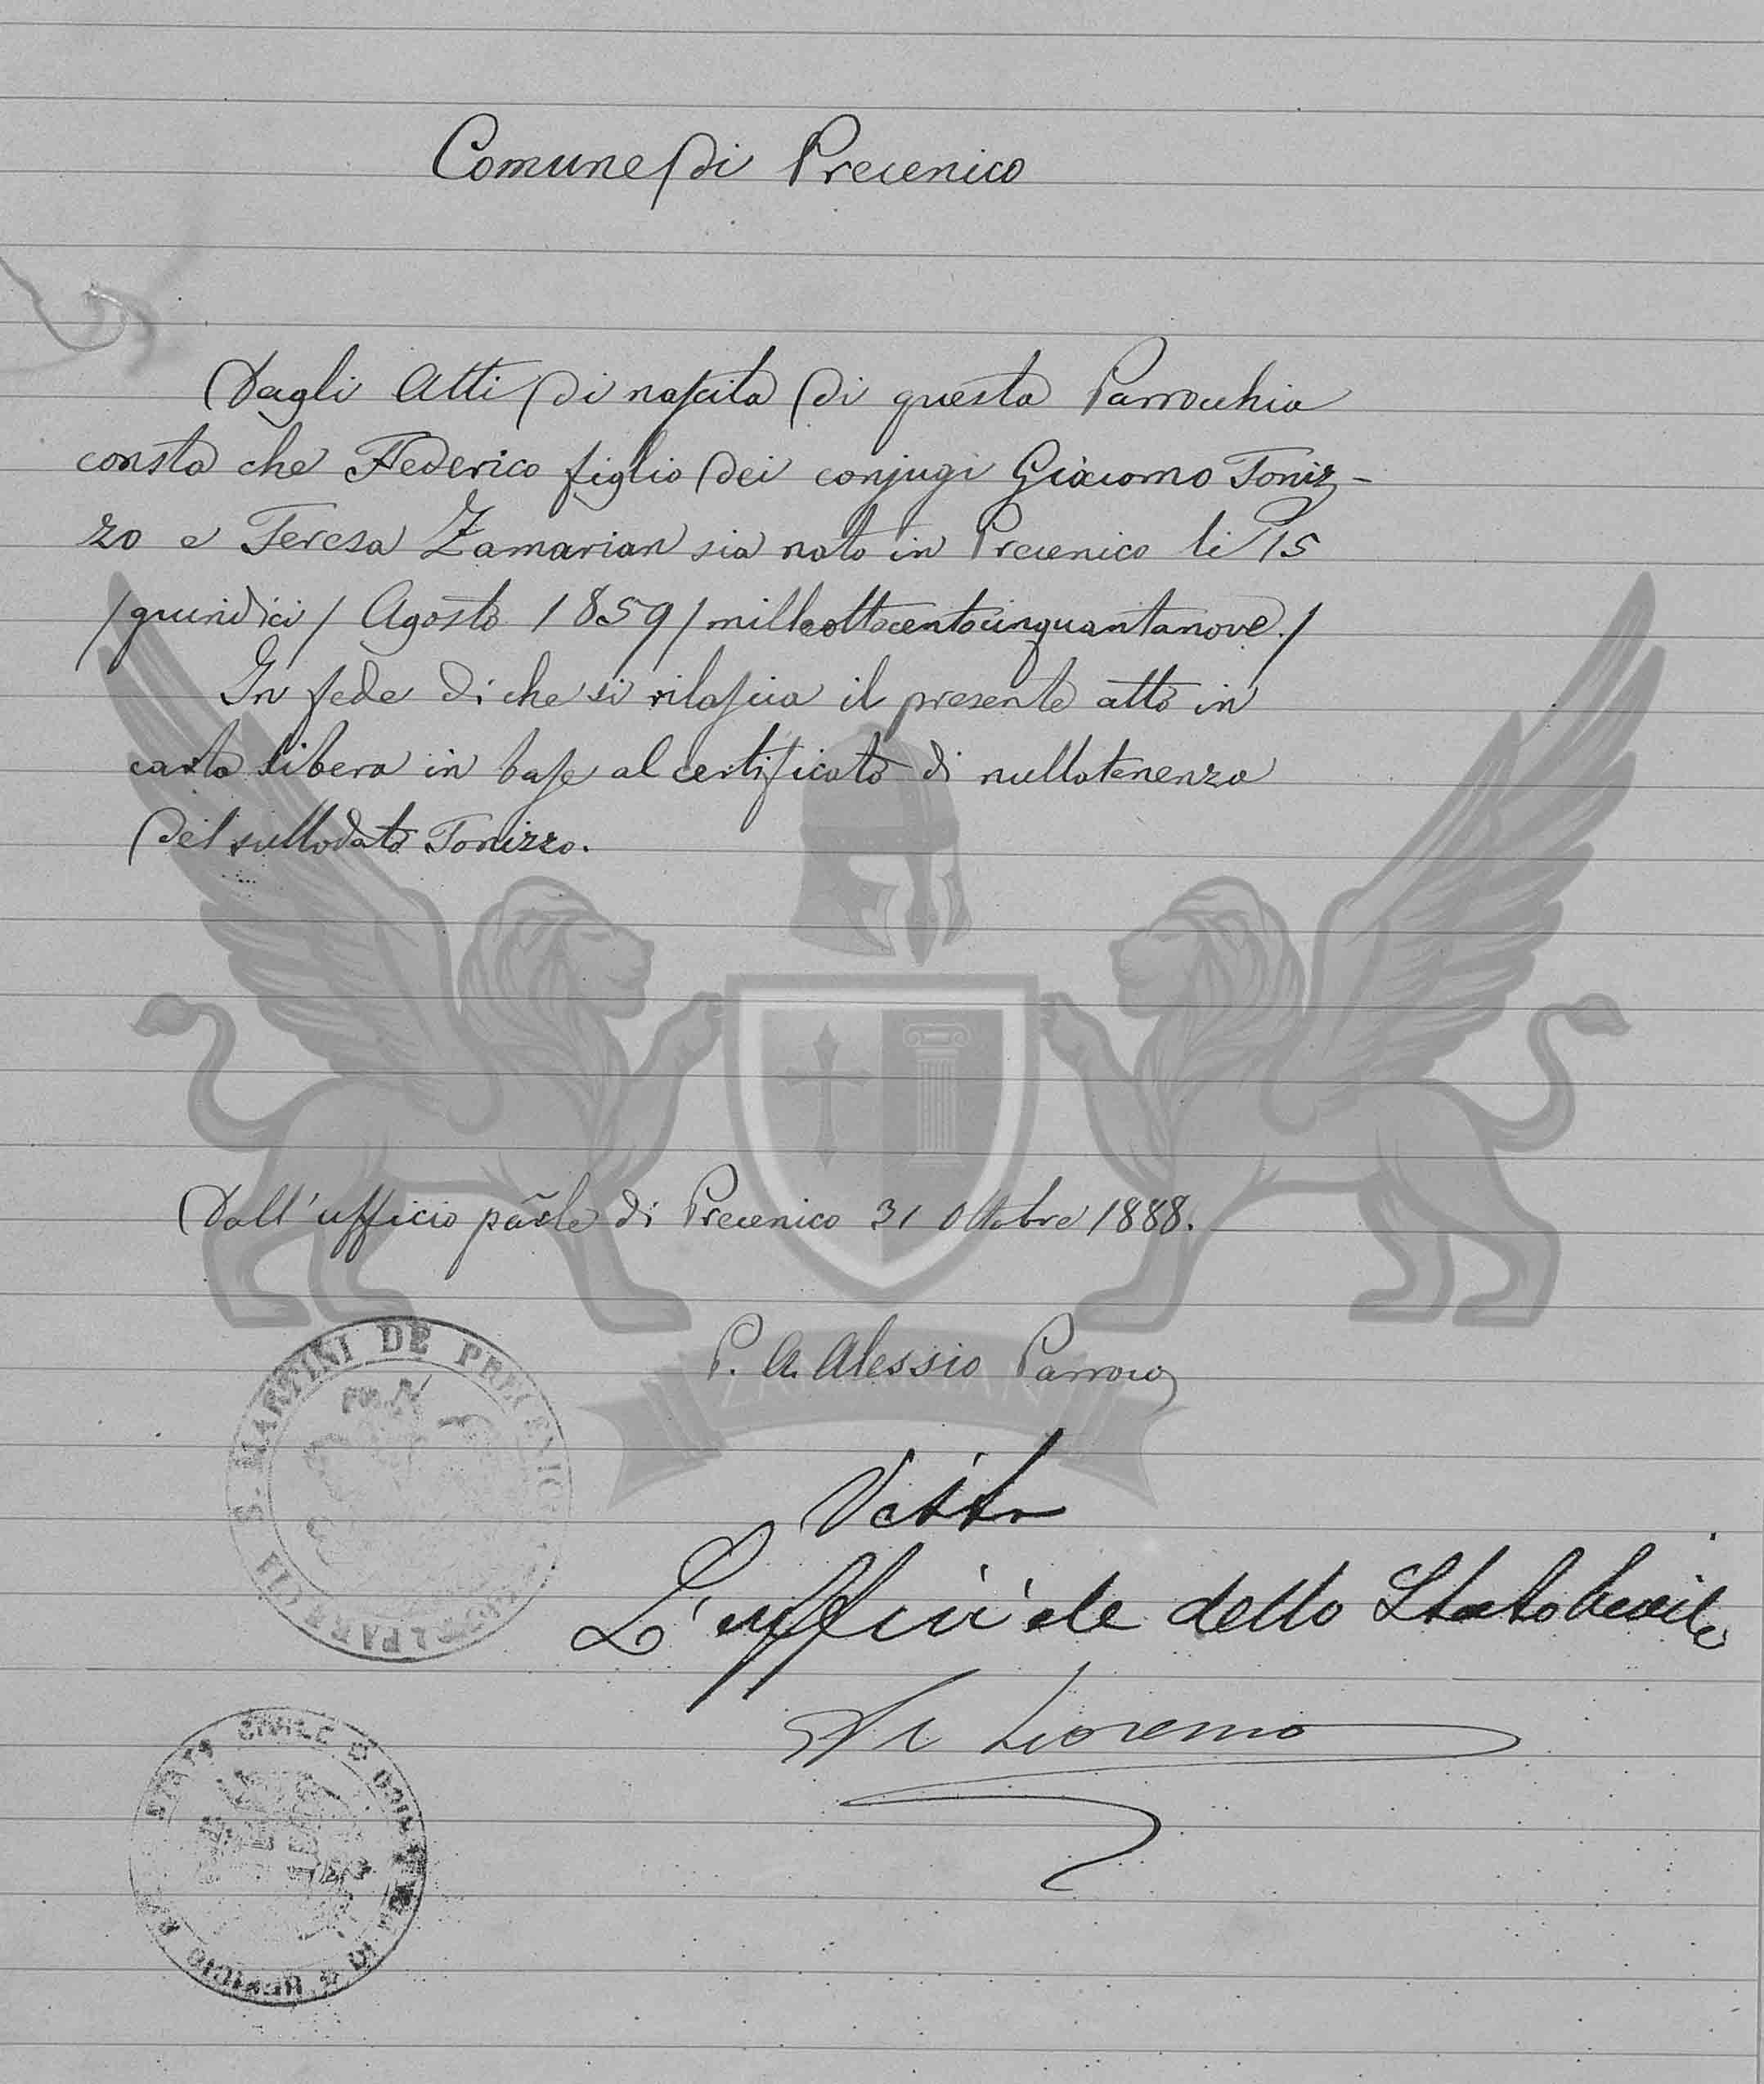 Comune di Precenico
Dagli Atti di nascita di questa Parrocchia
consta che Federico figlio dei conjugi Giacomo Toniz-
zo e Teresa Zamarian sia nato in Precenico li 15
/quindici/ Agosto 1859/milleottocentocinquantanove./
In fede di che si rilascia il presente atto in
carta libera in base al certificato di nullatenenza
del sullodato Tonizzo.
Dall'ufficio pãrle di Precenico 31 Ottobre 1888.
P. A. Alessio Parroco
Visto
L'ufficiale dello Stato Civile
S. MARTINI DE PRECENICO
STATO CIVILE
UFFICIO